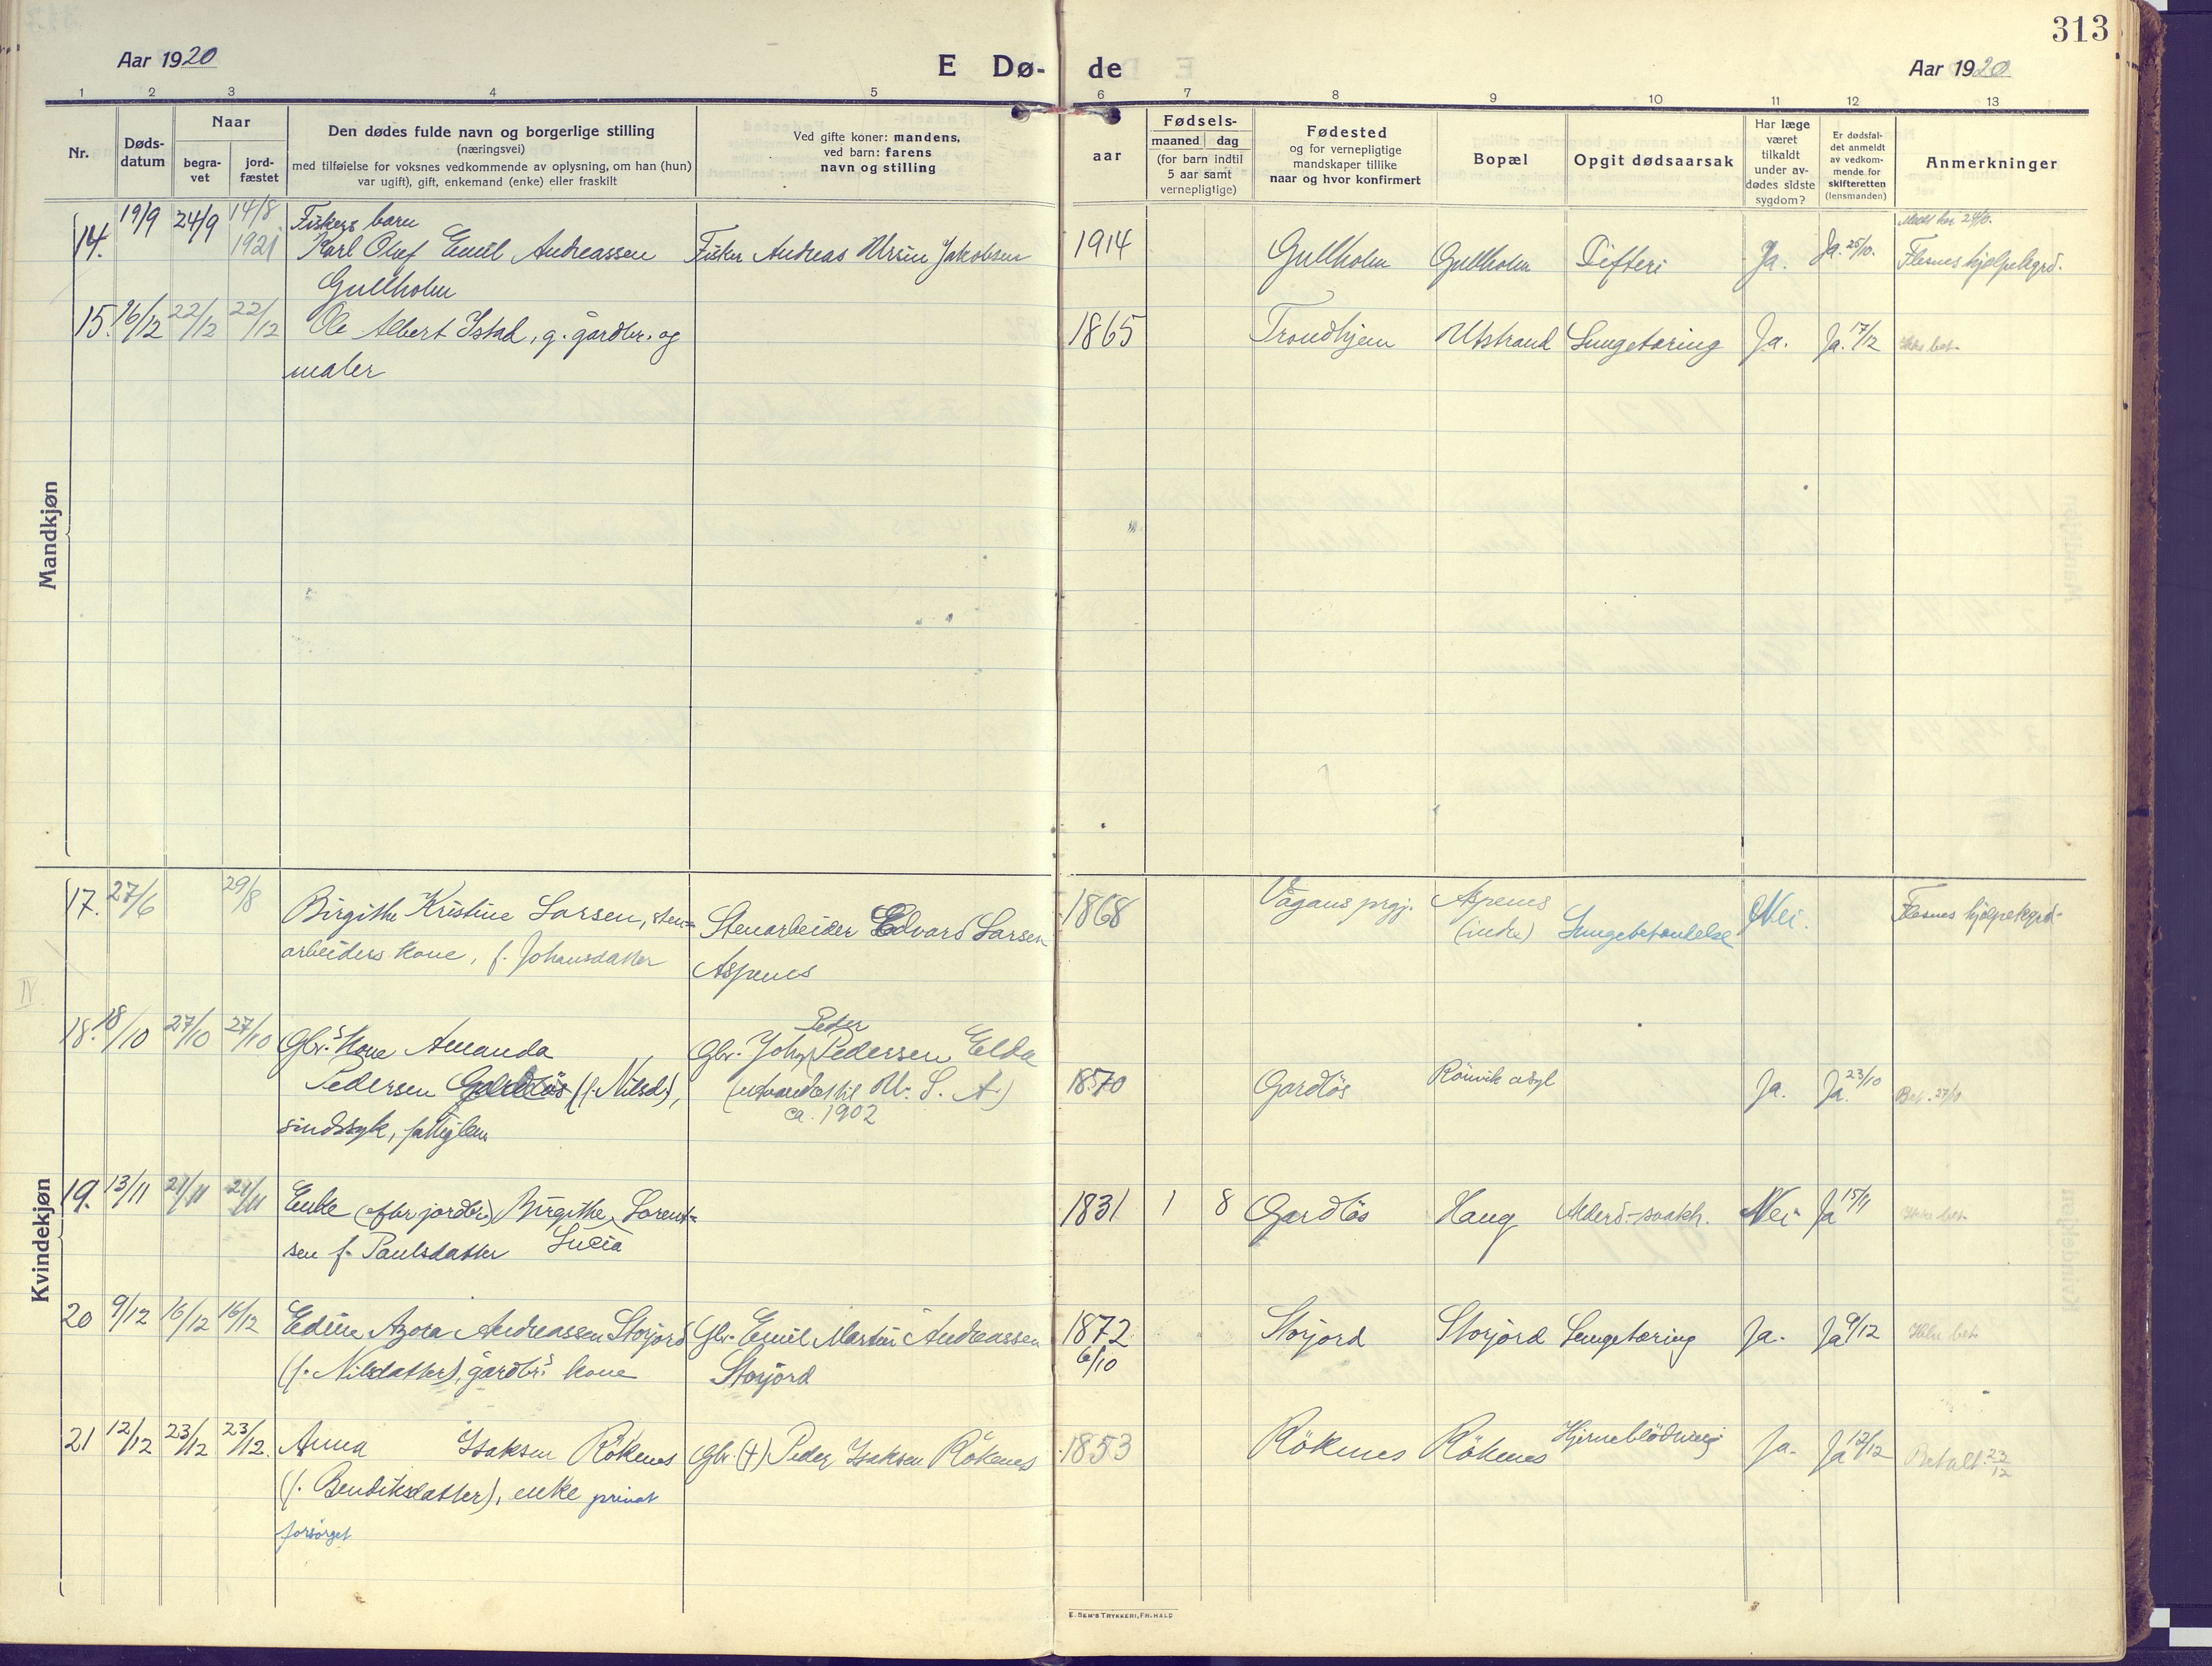 313
Aar 1920 E Dø- de Aar 1920
1 2 3 4 5 6 7 8 9 10 11 12 13
Nr.
Døds-
datum
Naar
begra-
vet
jord-
fæstet
Den dødes fulde navn og borgerlige stilling
(næringsvei)
med tilføielse for voksnes vedkommende av oplysning, om han (hun)
var ugift), gift, enkemand (enke) eller fraskilt
Ved gifte koner: mandens,
ved barn: farens
navn og stilling
aar
Fødsels-
maaned dag
(for barn indtil
5 aar samt
vernepligtige)
Fødested
og for vernepligtige
mandskaper tillike
naar og hvor konfirmert
Bopæl
Opgit dødsaarsak
Har læge
været
tilkaldt
under av-
dødes sidste
sygdom?
Er dødsfal-
det anmeldt
av vedkom-
mende for
skifteretten
(lensmanden)
Anmerkninger
Mandkjøn
14. 19/9 24/9 14/8 Fiskers barn
1921 Karl Olaf Emil Andreassen Fisker Andreas Ursin Jakobsen 1914 Gullholm Gullholm Difteri Ja. Ja. 25/10. Flesnes hjelpekgrd.
Gullholm
15. 16/12 22/12 22/12 Ole Albert Istad, g. gardbr. og 1865 Trondhjem Utstrand Lungetæring Ja. Ja. 17/12 Ikke bet.
maler
Kvindekjøn
17. 27/6 29/8 Birgithe Kristine Larsen, sten= Stenarbeider Edvard Larsen 1868 Vågans prgj. Aspenes Nei. Flesnes hjelpekgrd.
arbeiders kone, f. Johansdatter Aspenes (indre) Lungebetændelse
18. 18/10 27/10 27/10 Gbr.s kone Amanda Gbr. Johan Peder Pedersen Elda
Pedersen Gardløs (f. Nilsd.), (utvandret til U. S. A.) 1870 Gardlös Rönvik asyl Ja. Ja. 23/10 Bet. 27/10
sindssyk, fattiglem ca. 1902
19. 13/11 21/11 21/11 Enke (efter jordbr.) Birgithe Lorent= 1831 1 8 Gardlös Haug Alderd.-svakh. Nei. Ja 15/11 Ikke bet.
sen f. Paulsdatter Lucia
20 9/12 16/12 16/12 Edine Azora Andreassen Storjord Gbr. Emil Martin Andreassen 1872 Storjord Storjord Lungetæring Ja. Ja 9/12 Ikke bet.
(f. Nilsdatter), gardbr.s kone Storjord 6/10
21 12/12 23/12 23/12. Anna Isaksen Rökenes Gbr. (+) Peder Isaksen Rökenes 1853 Rökenes Rökenes Hjerneblödning Ja. Ja 12/12 Betalt 23/12
(f. Bendiksdatter), enke privat
forsörget
E. SEM'S TRYKKERI, FR.HALD